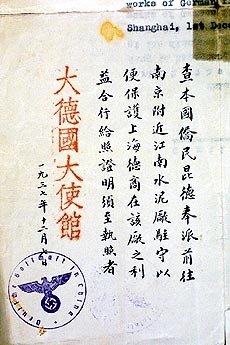 works of German
Shanghai, 1st Dec
查本國僑民昆德奉派前往
南京附近江南水泥廠駐守以
便保護上海德商在該廠之利
益合行給照證明須至執照者
大德國大使館
一九三七年十二月一日
Deutsche Botschaft in China